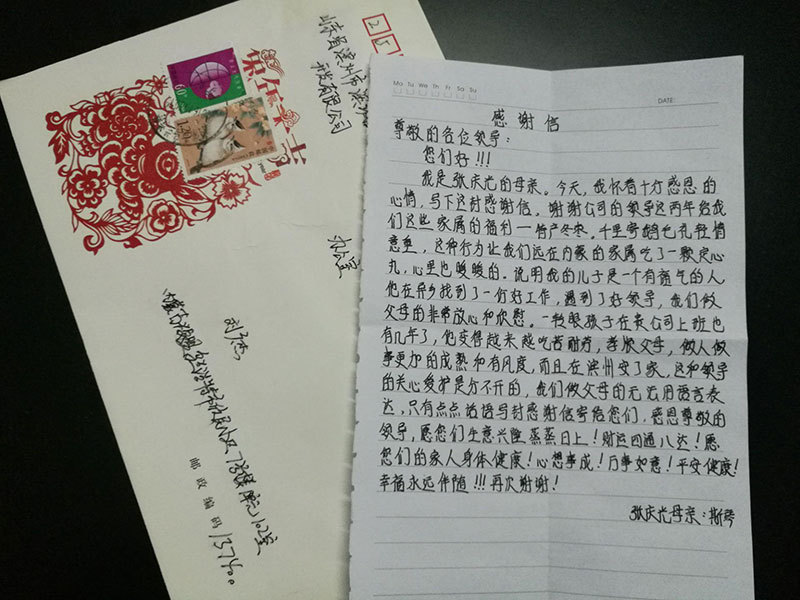 2 5
山东省滨州市
科技有限公司
办公室
刘
内蒙古
102室
邮政编码 137400
1.20元
Mo Tu We Th Fr Sa Su
DATE:
感谢信
尊敬的各位领导：
您们好!!!
我是张庆光的母亲。今天，我怀着十方感恩的
心情，写下这封感谢信。谢谢公司的领导这两年给我
们这些家属的福利—特产冬枣。千里寄鹅毛礼轻情
意重，这种行为让我们远在内蒙的家属吃了一颗定心
丸，心里也暖暖的。说明我的儿子是一个有福气的人
他在异乡找到了一份好工作，遇到了好领导，我们做
父母的非常放心和欣慰。一转眼孩子在贵公司上班也
有几年了，他变得越来越吃苦耐劳，孝顺父母，做人做
事更加的成熟和有风度，而且在滨州安了家。这和领导
的关心爱护是分不开的，我们做父母的无法用语言表
达，只有点点话语写封感谢信寄给您们，感恩尊敬的
领导，愿您们生意兴隆蒸蒸日上！财运四通八达！愿
您们的家人身体健康！心想事成！万事如意！平安健康！
幸福永远伴随!!!再次谢谢！
张庆光母亲：斯琴